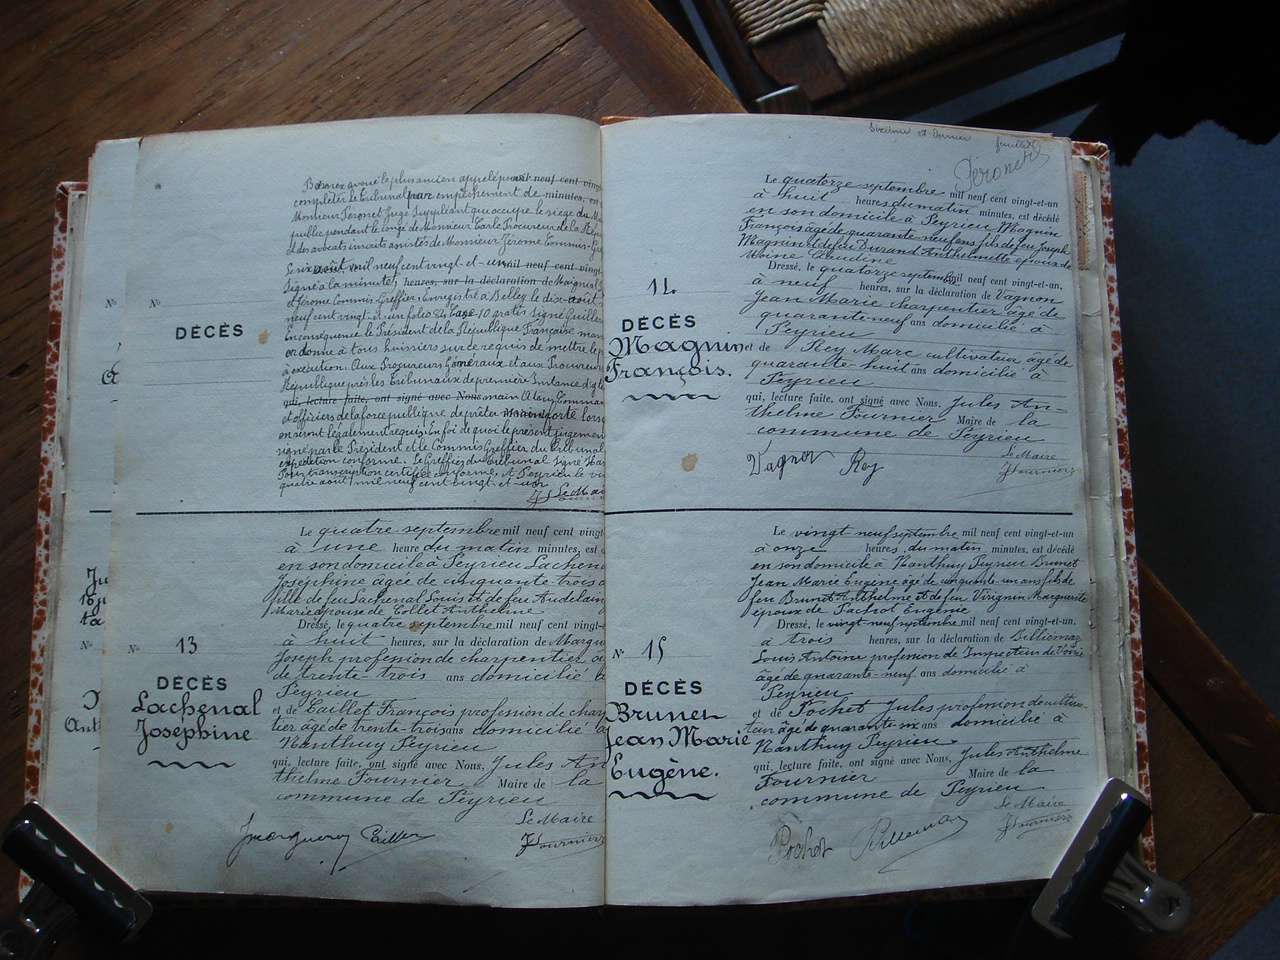 Nº
DÉCÈS
complèter le tribunal par empêchement de minutes, en
Monsieur Peronet Juge Suppléant qui occupe le siège du
publique pendant le congé de Monsieur Carle Procureur de la Rép
et des avocats inscrits assistés de Monsieur Jérôme Commis-Gre
Le six août mil neuf cent vingt-et-un
Signé à la minute
et Jérôme Commis Greffier Enregistré à Belley le dix août
neuf cent vingt-et-un folio 84 Case 10 gratis signé Guille
En conséquence le Président de la République Française man
ordonne à tous huissiers sur ce requis de mettre le p
à exécution. Aux Procureurs Généraux et aux Procureur
République près les tribunaux de première Instance d'y te
qui, lecture faite, ont signé avec Nous main A tous Comman
et officiers de la force publique de prêter main forte lors
en seront légalement requis En foi de quoi le présent jugemen
signé par le Président et le Commis Greffier du tribunal
expédition conforme. Le Greffier du tribunal signé
Pour transcription certifiée conforme, à Peyrieu le vi
quatre août mil neuf cent vingt-et-un
Le Mai
Nº 13
DÉCÈS
Lachenal
Josephine
Le quatre septembre mil neuf cent vingt-
à une heure du matin minutes, est d
en son domicile à Peyrieu Lachen
Joséphine âgée de cinquante-trois a
fille de feu Lachenal Louis et de feu Audelain
Marie épouse de Collet Anthelme
Dressé, le quatre septembre mil neuf cent vingt-
à huit heures, sur la déclaration de Margue
Joseph profession de charpentier
de trente-trois ans domicilié à
Peyrieu
et de Caillet François profession de char
tier âgé de trente-trois ans domicilié à
Nanthuy Peyrieu
qui, lecture faite, ont signé avec Nous, Jules An
thelme Fournier Maire de la
commune de Peyrieu
Le Maire
JFournier
Peronet
14
DÉCÈS
Magnin
François.
Le quatorze septembre mil neuf cent vingt-et-un
à huit heures du matin minutes, est décédé
en son domicile à Peyrieu Magnin
François âgé de quarante-neuf ans fils de feu Joseph
Magnin et de feu Durand Anthelmette époux de
Claudine
Dressé, le quatorze septembre mil neuf cent vingt-et-un,
à neuf heures, sur la déclaration de Vagnon
Jean Marie charpentier âgé de
quarante-neuf ans domicilié à
Peyrieu
et de Rey Marc cultivateur âgé de
quarante-huit ans domicilié à
Peyrieu
qui, lecture faite, ont signé avec Nous, Jules An-
thelme Fournier Maire de la
commune de Peyrieu
Vagnon Rey
Le Maire
JFournier
Nº 15
DÉCÈS
Brunet
Jean Marie
Eugène.
Le vingt neuf septembre mil neuf cent vingt-et-un
à onze heures du matin minutes, est décédé
en son domicile à Nanthuy Peyrieu Brunet
Jean Marie Eugène âgé de cinquante-un ans fils de
feu Brunet Anthelme et de feu Virignin Marguerite
époux de Pachot Eugénie
Dressé, le vingt neuf septembre mil neuf cent vingt-et-un,
à trois heures, sur la déclaration de Billiemaz
Louis Antoine profession de Inspecteur de Voirie
âgé de quarante-neuf ans domicilié à
Peyrieu
et de Pochet Jules profession de cultiva-
teur âgé de quarante-six ans domicilié à
Nanthuy Peyrieu.
qui, lecture faite, ont signé avec Nous, Jules Anthelme
Fournier Maire de la
commune de Peyrieu
Pochet Billiemaz
Le Maire
JFournier